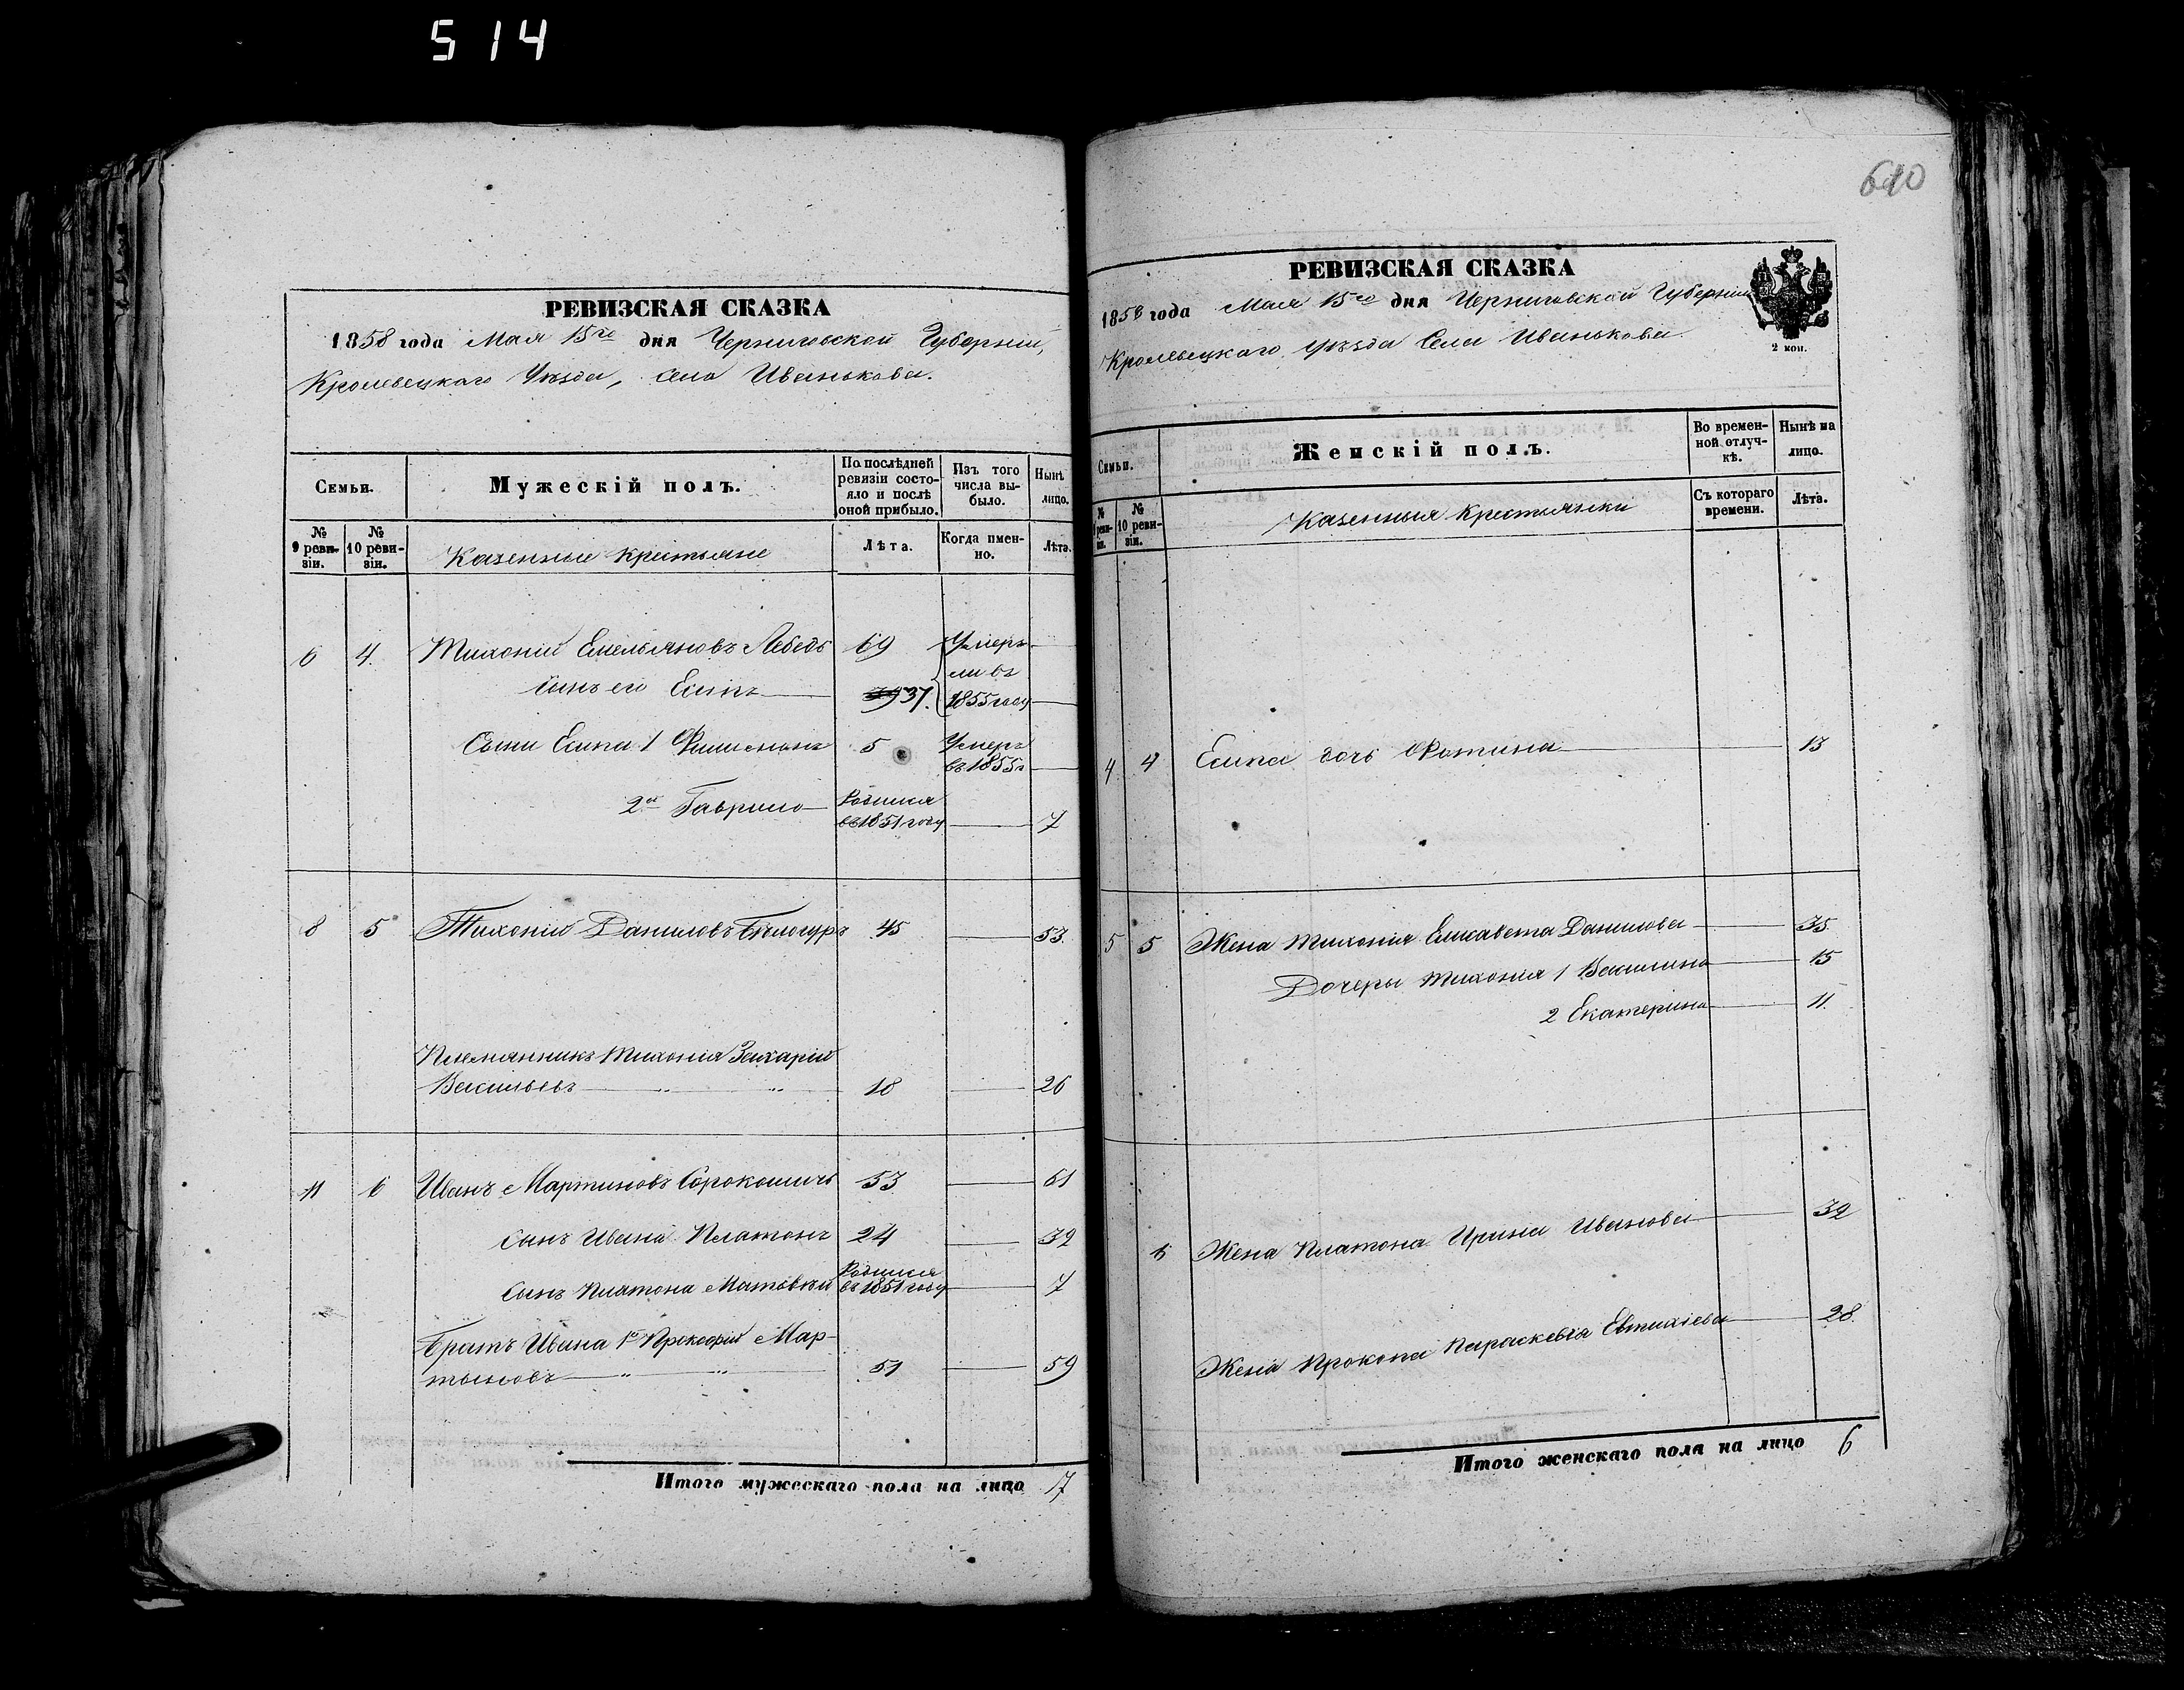 514
РЕВИЗСКАЯ СКАЗКА
1858 года Мая 15го дня Черниговской Губерніи,
Кролевецкаго Уѣзда, села Иванькова.
Семьи.
Мужескій полъ.
По послѣдней ревизіи состояло и послѣ оной прибыло.
Изъ того числа выбыло.
Нынѣ лицо.
№ 9 ревизіи.
№ 10 ревизіи.
Казенные крестьяне
Лѣта.
Когда именно.
Лѣта.
6 4. Тихоній Емельяновъ Лебедь 69 Умерли въ 1855 году
сынъ его Есипъ 37.
Сыны Есипа 1 Филимонъ 5 Умеръ въ 1855 г
2й Гаврило Родился въ 1851 году 7
8 5 Тихоній Даниловъ Бѣлогуръ 45 53.
Племянникъ Тихонія Захарій
Васильевъ 18 26
11 6 Иванъ Мартиновъ Сорокошичь 53 61
сынъ Ивана Платонъ 24 32
сынъ Платона Матвѣй Родился въ 1851 году 7
Братъ Ивана 1й Прокофій Мар-
тыновъ 51 59
Итого мужескаго пола на лицо 7
610
РЕВИЗСКАЯ СКАЗКА
1858 года Мая 15го дня Черниговской Губерніи
Кролевецкаго уѣзда Села Иванькова.
2 коп.
Семьи.
Женскій полъ.
Во временной отлучкѣ.
Нынѣ на лицо.
№ 9 ревизіи.
№ 10 ревизіи.
Казенныя крестьянки
Съ котораго времени.
Лѣта.
4 4 Есипа дочь Фотина 13
5 5 Жена Тихонія Елисавета Данилова 35.
Дочеры Тихонія 1 Василина 15
2 Екатерина 11.
6 Жена Платона Ирина Иванова 32
Жена Прокопа Параскевія Евтихіева 28.
Итого женскаго пола на лицо 6